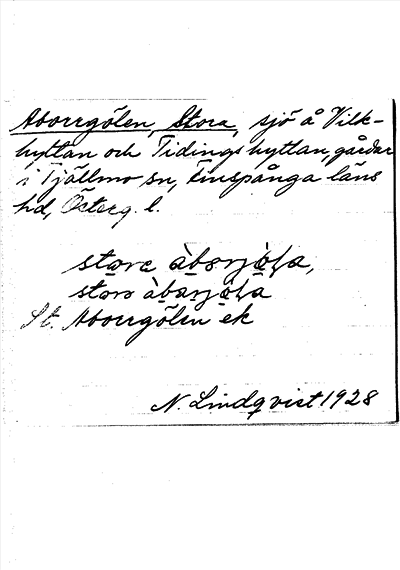 Aborrgölen, Stora, sjö å Vilk-
hyttan och Tidingshyttan, gårdar
i Tjällmo sn, Finspånga läns
hd, Österg. l.
St. Aborrgölen ek
N. Lindqvist 1928